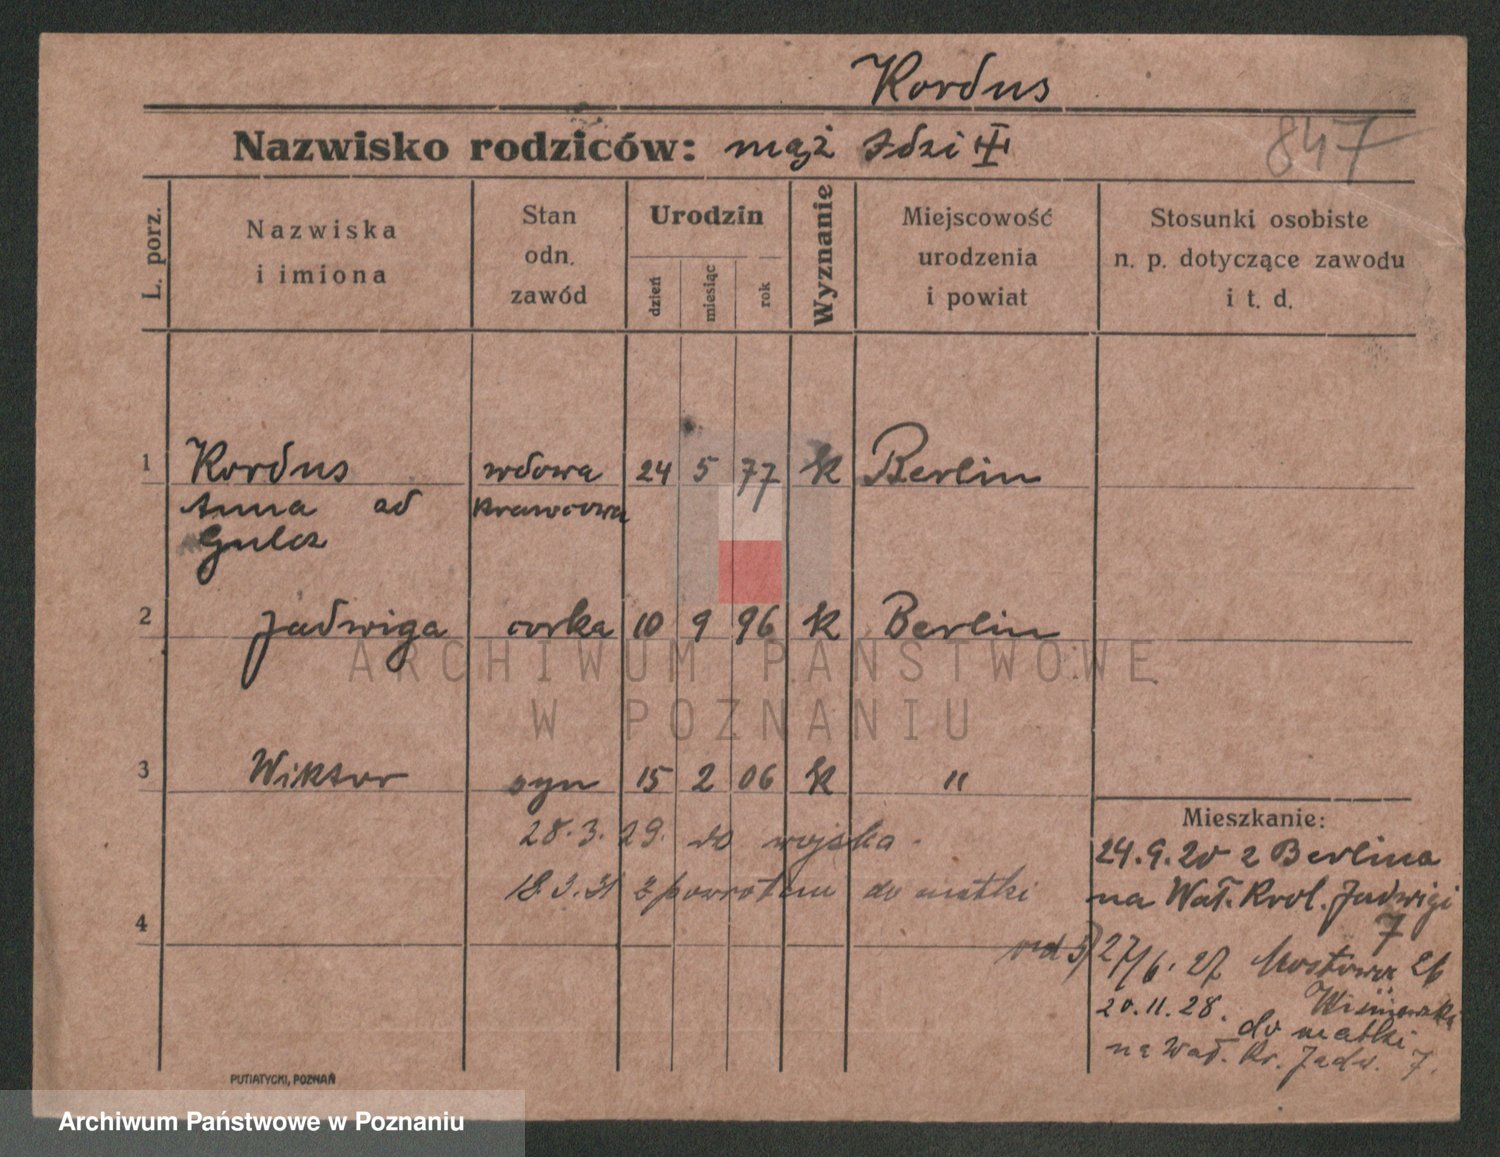 Kordus
Nazwisko rodziców: mąż Idzi
847
L. porz.
Nazwiska
i imiona
Stan
odn.
zawód
Urodzin
dzień
miesiąc
rok
Wyznanie
Miejscowość
urodzenia
i powiat
Stosunki osobiste
n. p. dotyczące zawodu
i t. d.
1 Kordus wdowa 24 5 77 k Berlin
Anna od krawcowa
Gulcz
2 Jadwiga corka 10 9 96 k Berlin
ARCHIWUM PAŃSTWOWE
W POZNANIU
3 Wiktor syn 15 2 06 k "
28.3.29. do wojska.
18.3.31 z powrotem do matki
4
Mieszkanie:
24.9.20 z Berlina
na Wał. Krol. Jadwigi
7
27/6.27 Mostowa 26
20.11.28. do matki
na Wał. Kr. Jadw. 7.
PUTIATYCKI, POZNAŃ
Archiwum Państwowe w Poznaniu